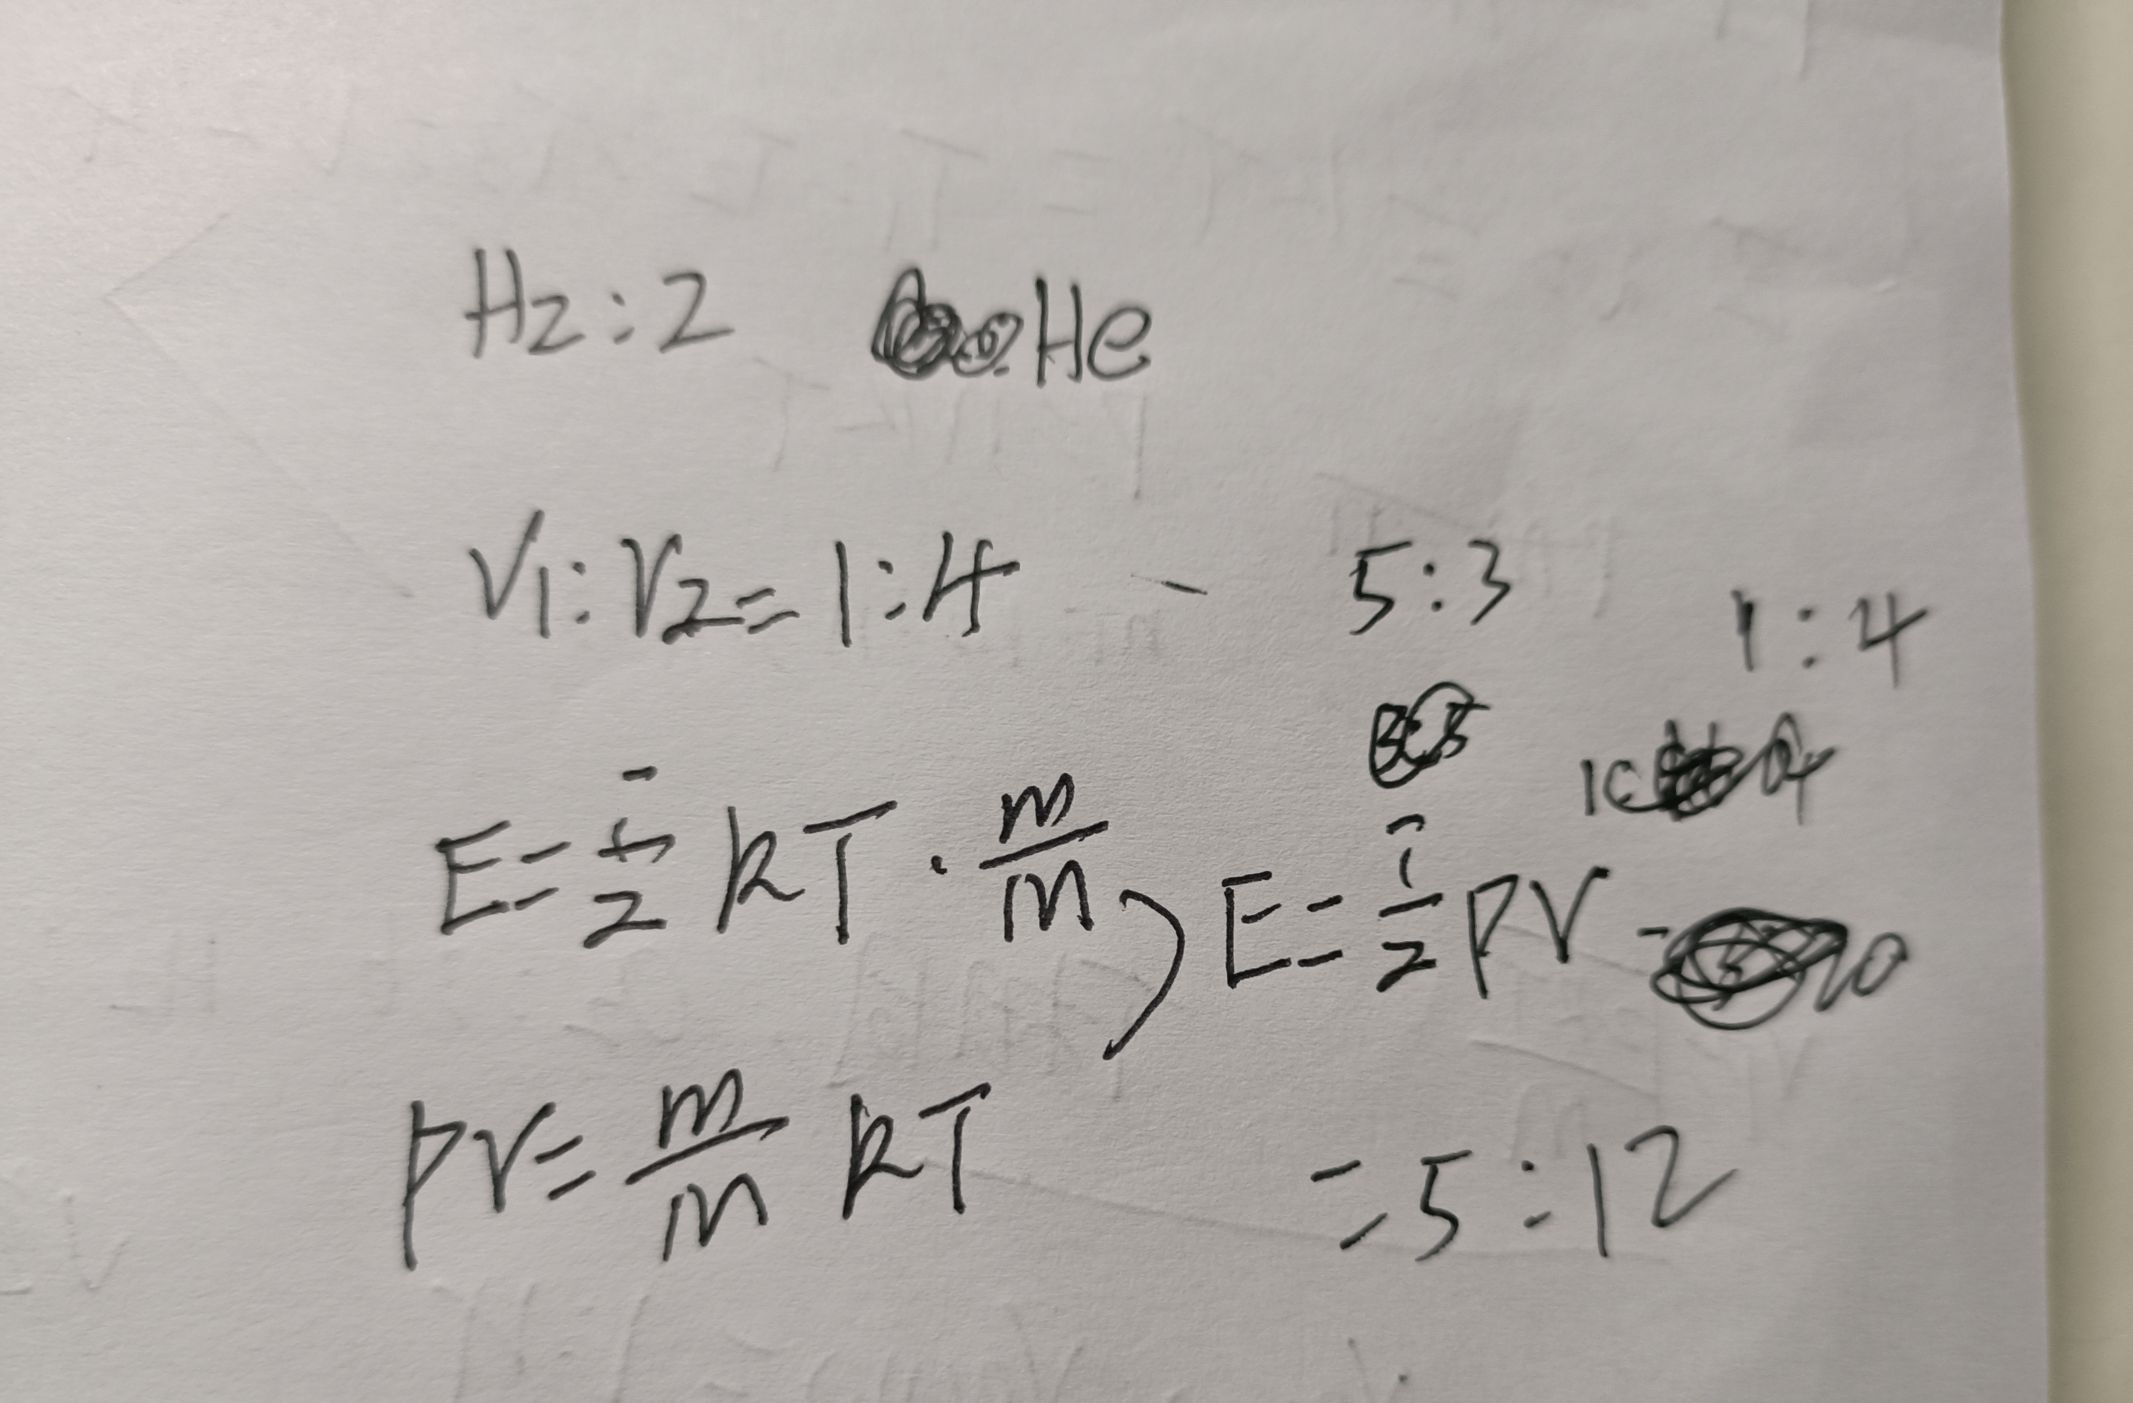 H2:2 He
V1:V2=1:4 5:3 1:4
E=i/2 RT·m/M E=i/2 PV
PV=m/M RT =5:12